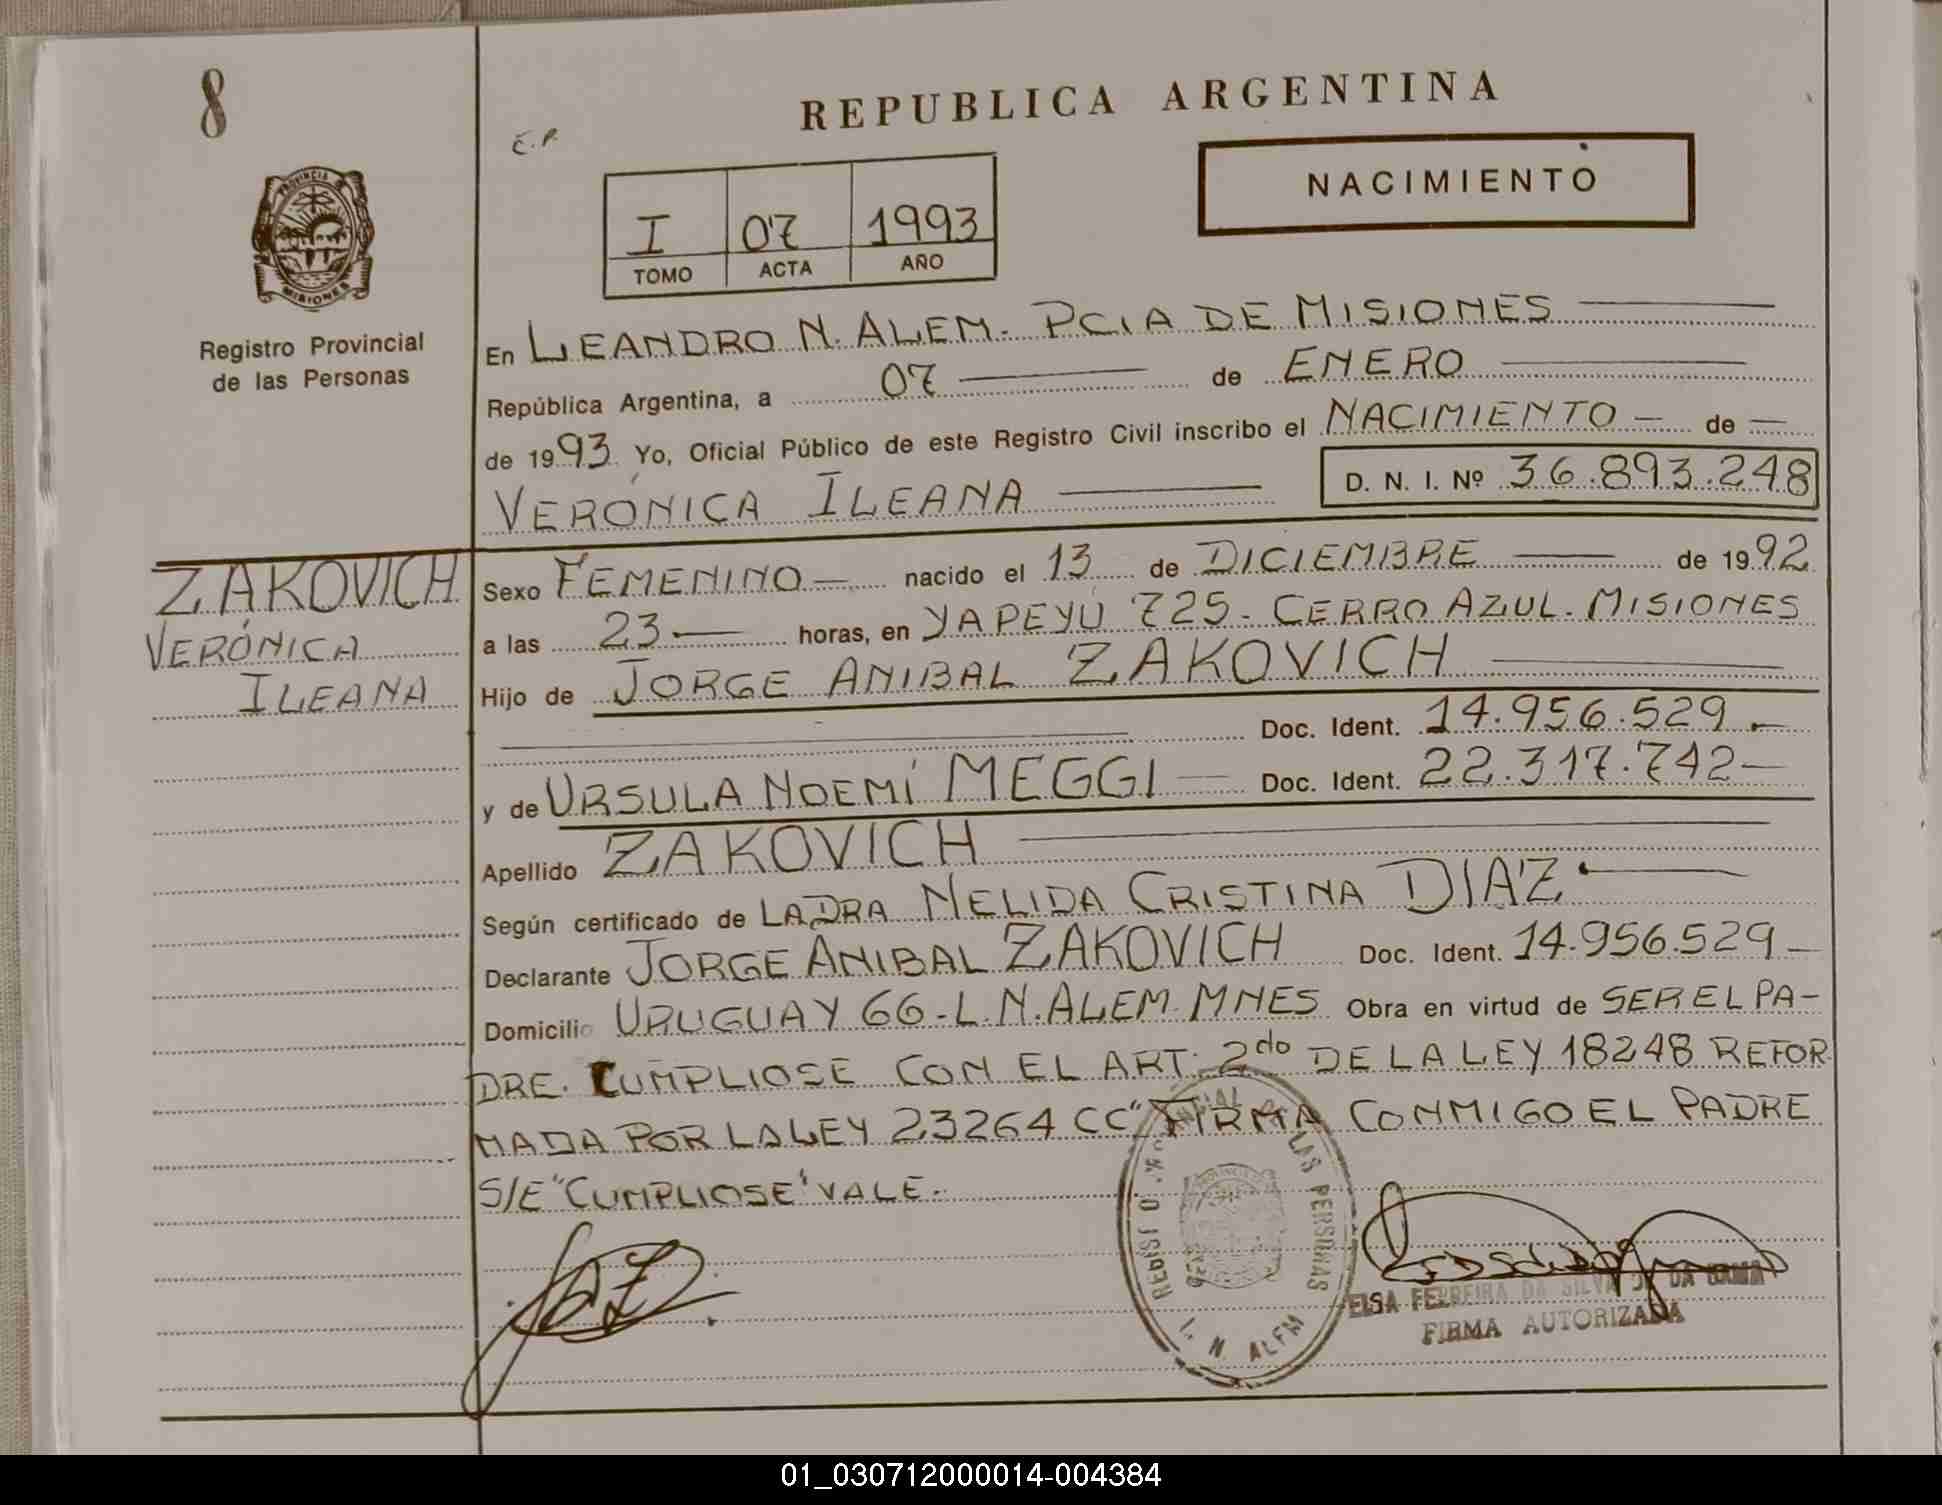 8
REPUBLICA ARGENTINA
E.P.
NACIMIENTO
I 07 1993
TOMO ACTA AÑO
PROVINCIA
MISIONES
Registro Provincial
de las Personas
En LEANDRO N. ALEM. PCIA DE MISIONES
República Argentina, a 07 de ENERO
de 1993 Yo, Oficial Público de este Registro Civil inscribo el NACIMIENTO de
VERÓNICA ILEANA D. N. I. Nº 36.893.248
ZAKOVICH
VERÓNICA
ILEANA
Sexo FEMENINO nacido el 13 de DICIEMBRE de 1992
a las 23 horas, en YAPEYÚ 725 - CERRO AZUL. MISIONES
Hijo de JORGE ANIBAL ZAKOVICH
Doc. Ident. 14.956.529
y de URSULA NOEMÍ MEGGI Doc. Ident. 22.317.742
Apellido ZAKOVICH
Según certificado de LA DRA NELIDA CRISTINA DIAZ
Declarante JORGE ANIBAL ZAKOVICH Doc. Ident. 14.956.529
Domicilio URUGUAY 66 - L.N. ALEM. MNES Obra en virtud de SER EL PA-
DRE. CUMPLIOSE CON EL ART. 2do DE LA LEY 18248 REFOR
MADA POR LA LEY 23264 CC" FIRMA CONMIGO EL PADRE
S/E "CUMPLIOSE" VALE.
LAS PERSONAS
L. N. ALEM
ELSA FERREIRA DA SILVA DE DA GAMA
FIRMA AUTORIZADA
01_030712000014-004384